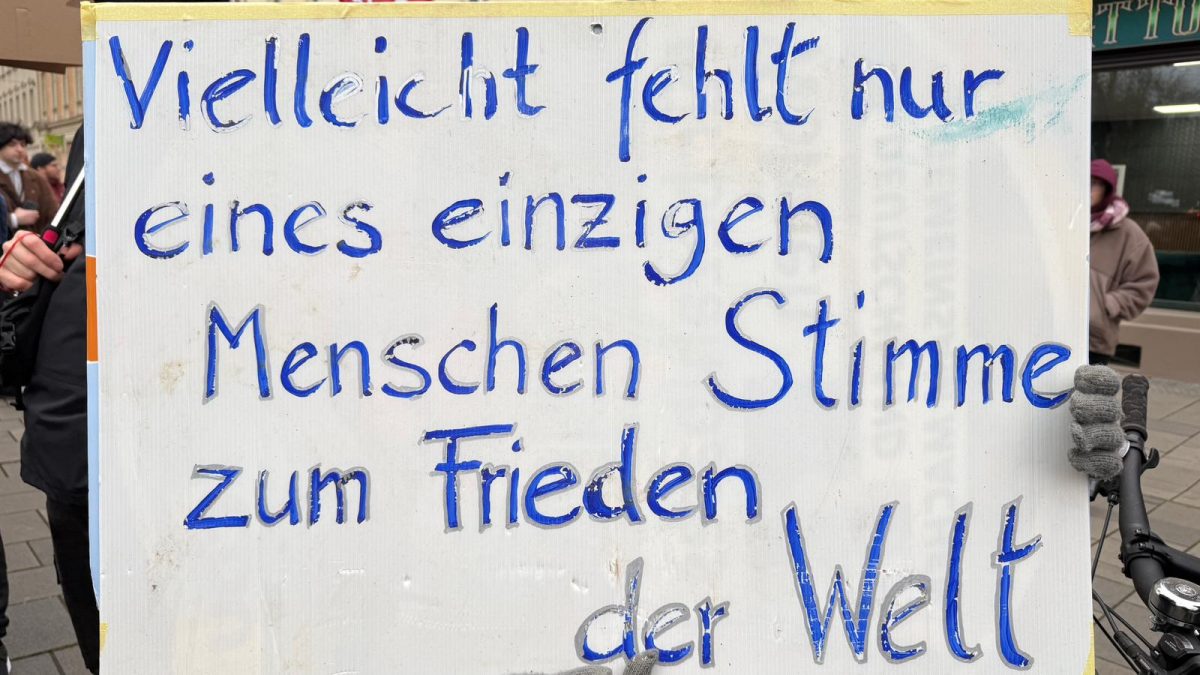 Vielleicht fehlt nur
eines einzigen
Menschen Stimme
zum Frieden
der Welt